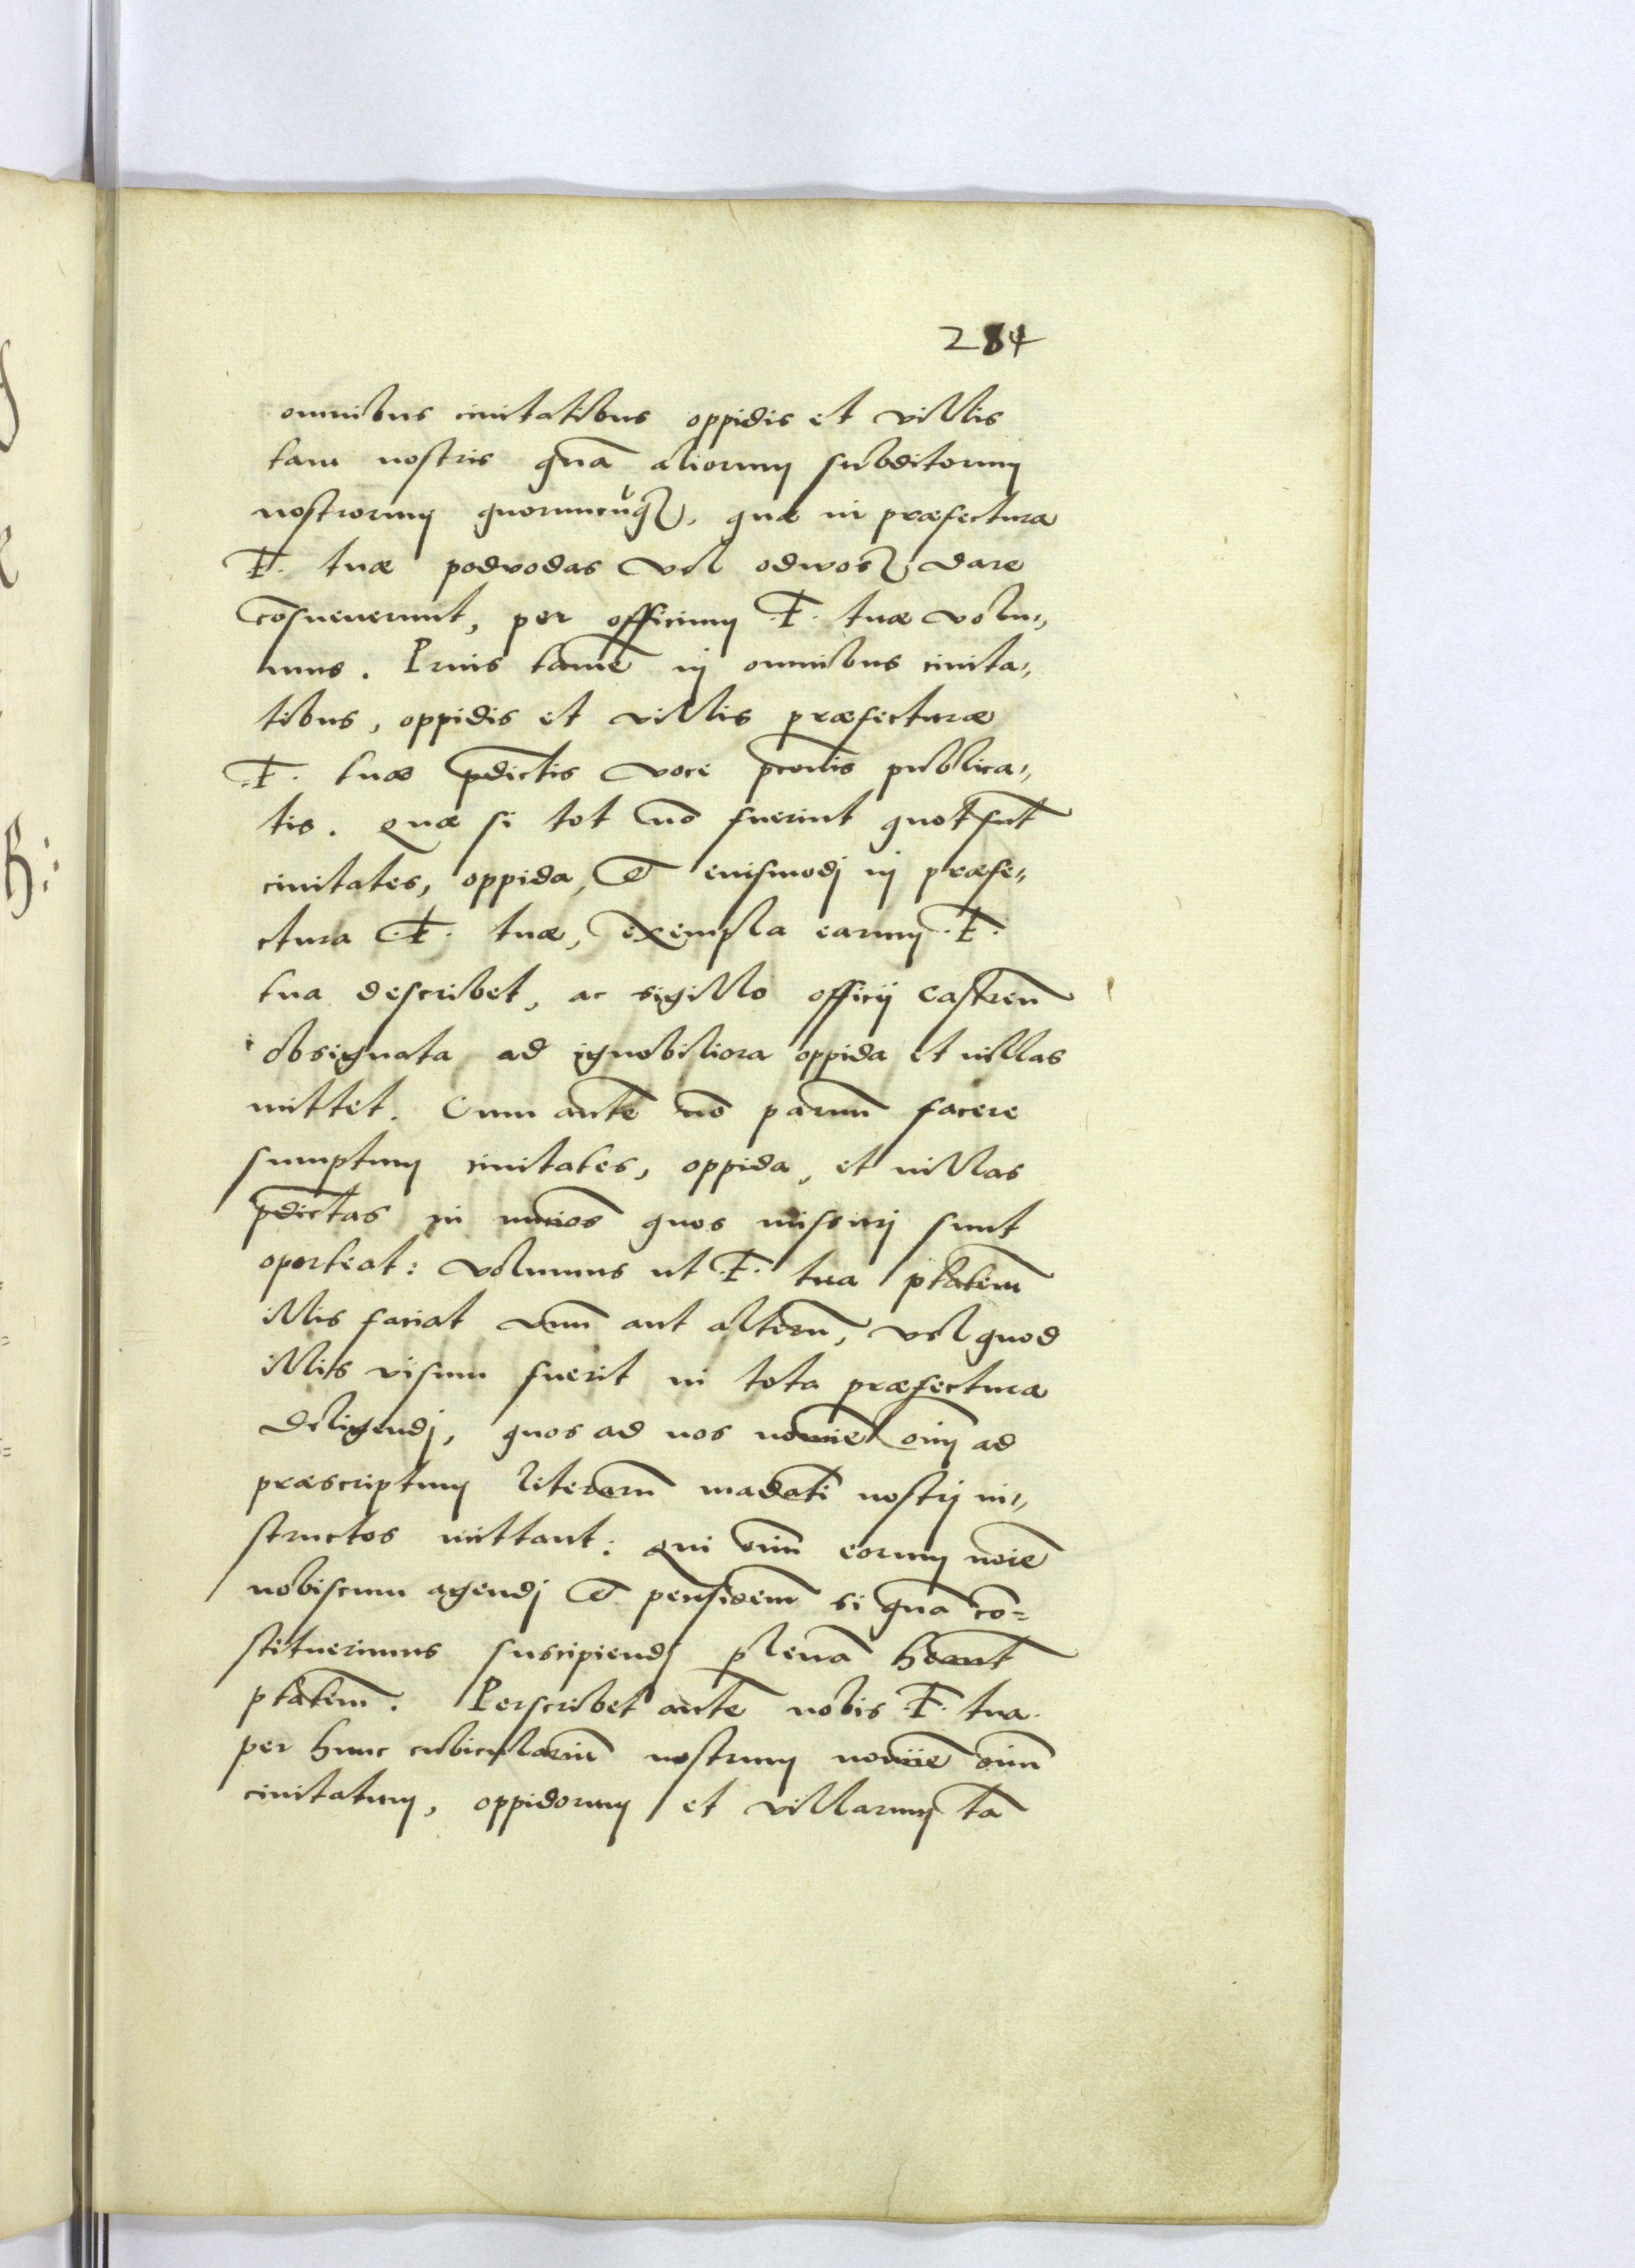 284
omnibus ciuitatibus oppidis et villis
tam nostris quā aliorum subditorum
nostrorum quorumcūq3, quæ in præfectura
F. tuæ podvodas vel odwos3 dare
cōsueuerunt, per officium F. tuæ volu„
mus. Prius tamē in omnibus ciuita„
tibus, oppidis et villis præfecturæ
F. tuæ p̄dictis voce p̄conis publica„
tis. Quæ si tot nō fuerint quot sūt
ciuitates, oppida, et eiusmodi in præfe„
ctura F. tuæ, exempla earum F.
tua describet, ac sigillo officij castreñ
obsignata ad ignobiliora oppida et uillas
mittet. Cum aūte nō parum̄ facere
sumptum ciuitates, oppida, et uillas
p̄dictas in nūcios quos missuri sunt
oporteat: volumus ut F. tua p̄tatem̄
illis faciat vnū aut alterū, vel quod
illis visum fuerit in tota præfectura
deligendi, quos ad nos nomīe oīm ad
præscriptum literarū mādati nostri in„
structos mittant: qui oīm eorum noīe
nobiscum agendi et perfidem si qua cō=
stituerimus suscipiendi plenā hēant
p̄tatem̄. Perscribet aūte nobis F. tua
per hunc cubiculariū nostrum nomīe oīm
ciuitatum, oppidorum et villarum tā